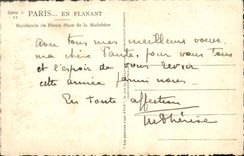 Série 1
11
PARIS... EN FLANANT
Marchande de Fleurs Place de la Madeleine
Avec tous mes meilleurs voeux
ma chère Tante, pour vous tous
et l'espoir de vous revoir
cette année parmi nous.
En toute affection